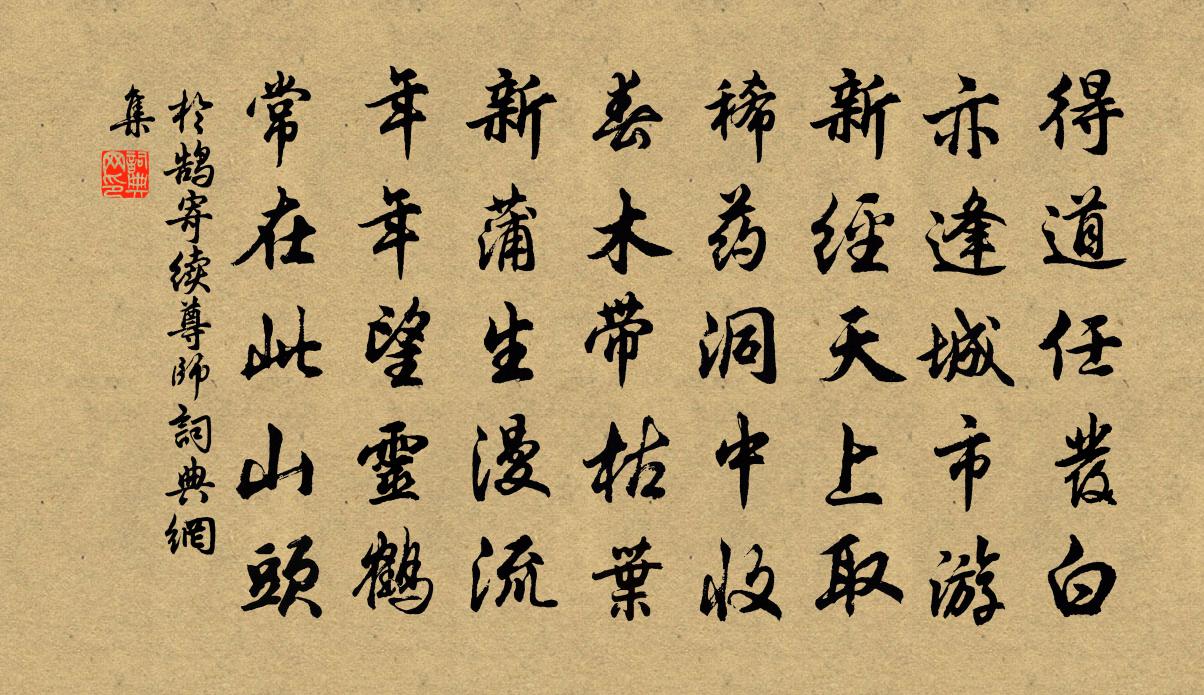 得道任發白
亦逢城市游
新經天上取
稀药洞中收
春木带枯葉
新蒲生漫流
年年望靈鶴
常在此山頭
於鵠寄續尊師詞典網
集
詞典
网印